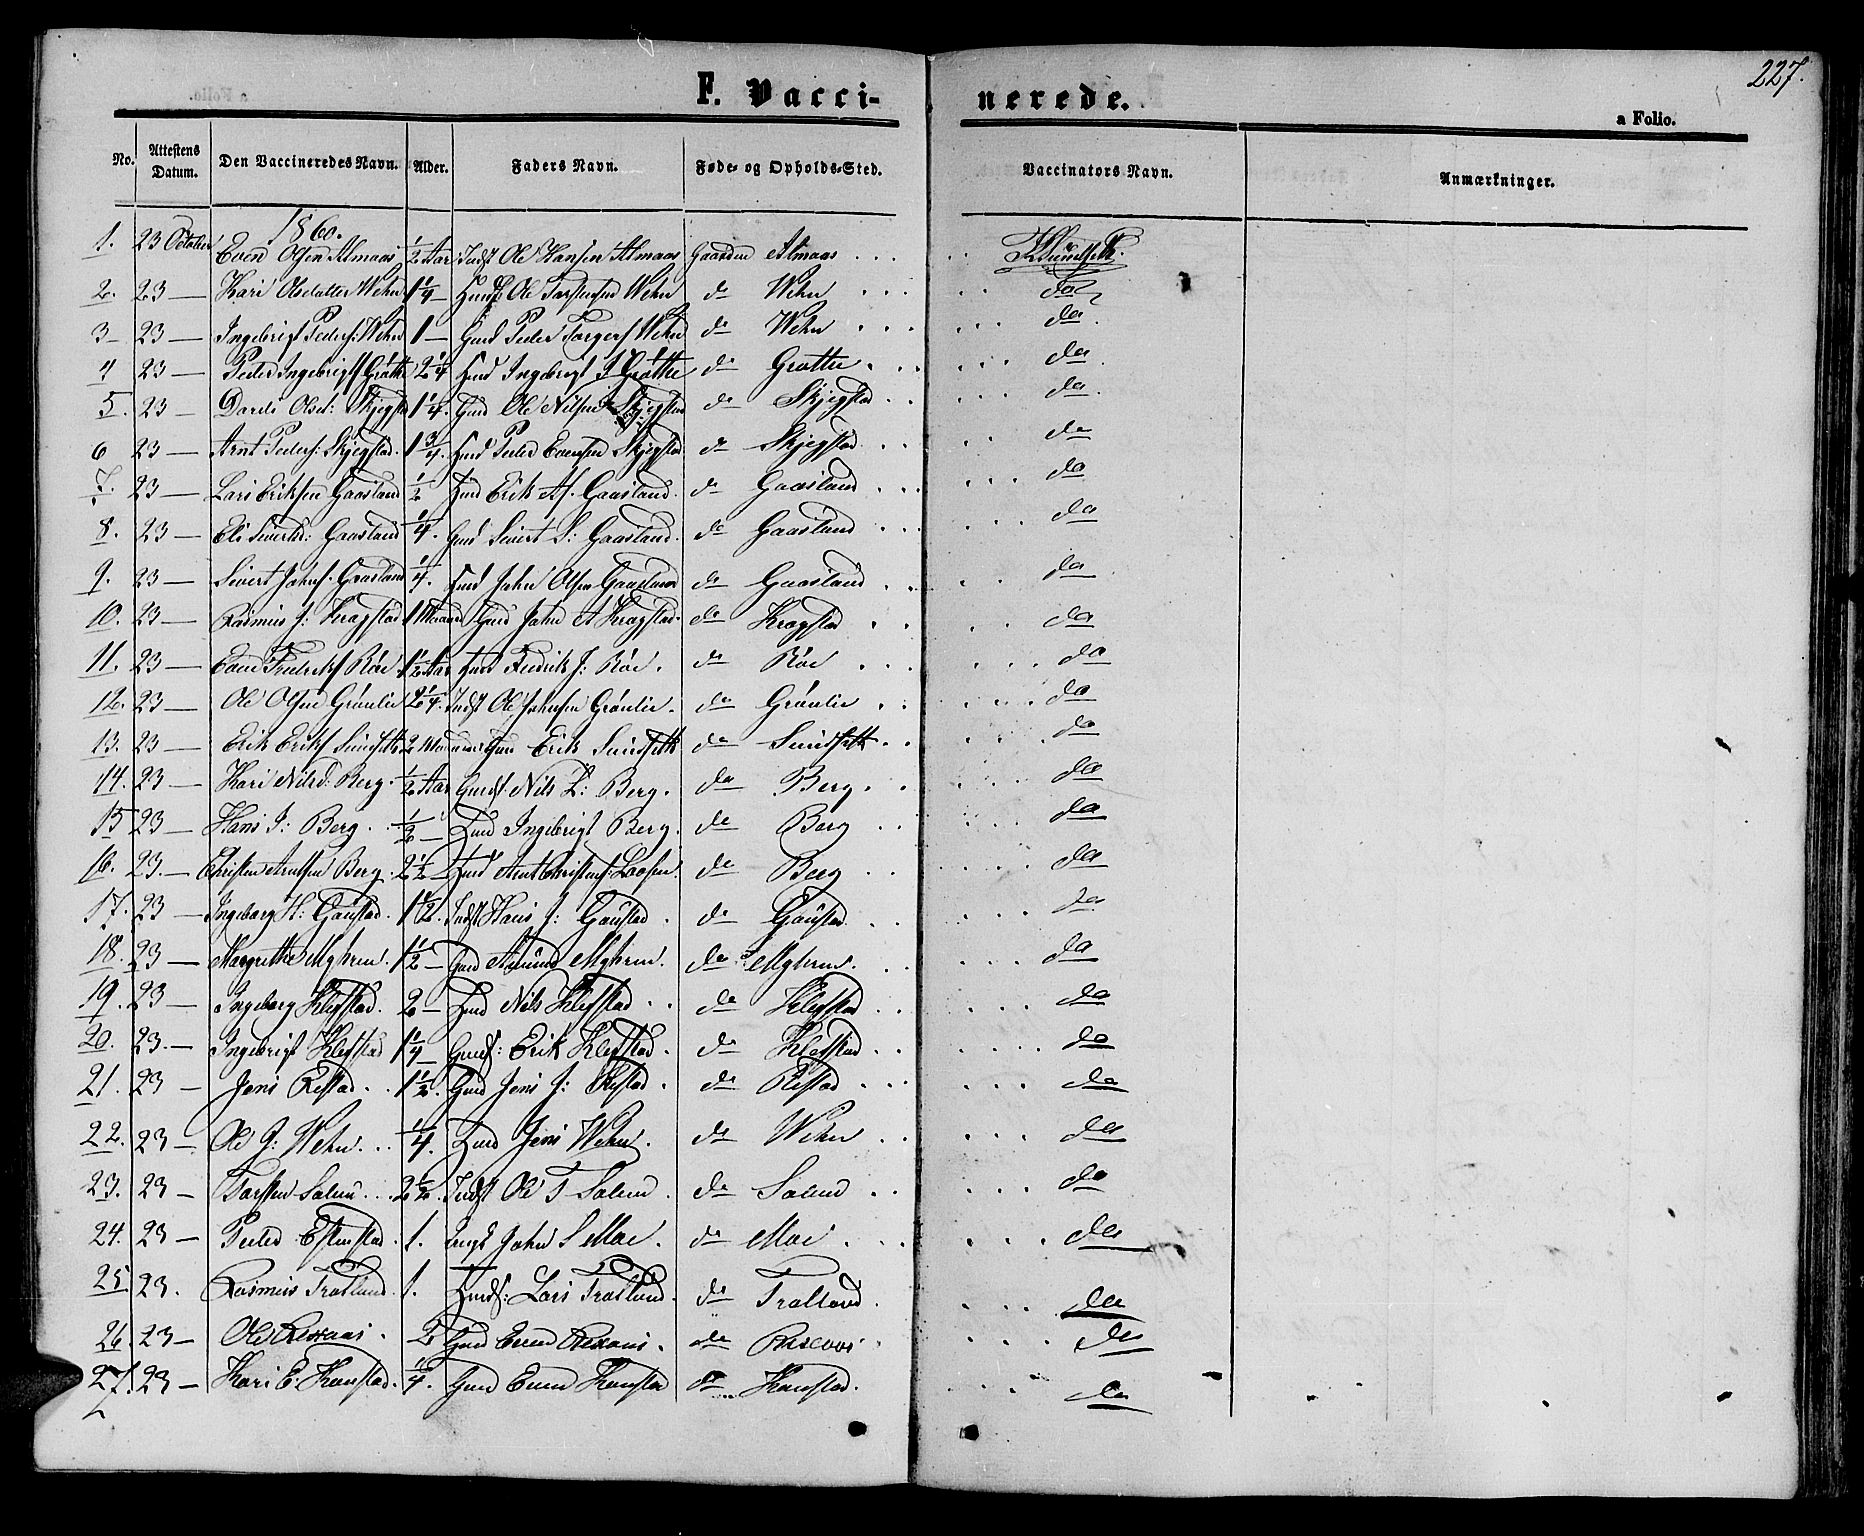 227.
F. Vacci-nerede.
a Folio.
No. Attestens Datum. Den Vaccineredes Navn. Alder. Faders Navn. Føde- og Opholds-Sted. Vaccinators Navn. Anmærkninger.
1860.
1. 23 October Even Olsen Almaas 1/2 Aar Indst Ole Hansen Almaas Gaarden Almaas
2. 23 — Kari Olsdatter Wehn 1 1/4 — Ole Torstensen Wehn do Wehn do
3 — 23 — Ingebrigt Peders: Wehn 1 — Gmd Peder Wehn do Wehn do
4 23 — Peder Ingebrigts Grøtte 2 1/4 Gmd Ingebrigt Grøtte do Grøtte do
5. 23 — Dorde Olsd: Skjegstad 1 1/4. Gmd Ole Nilsen Skjegstad do Skjegstad do
6 23 — Arnt Peders: Skjegstad 1 3/4. Gmd Peder Evensen Skjegstad do Skjegstad do
7. 23 — Lars Eriksen Gaasland 1/2 Gmd Erik A. Gaasland. do Gaasland do
8. 23 — Eli Sivertsd: Gaasland 1/4. Gmd Sivert S: Gaasland. do Gaasland do
9. 23 — Sivert Johns. Gaasland 1/4. Gmd John Olsen Gaasland do Gaasland do
10. 23 — Rasmus J: Kragstad 1 Maaned Gmd John A Kragstad. do Kragstad do
11. 23 — Even Fredriks Røe 1 1/2 Aar Gmd Fredrik J: Røe. do Røe do
12. 23 — Ole Olsen Grønlie 2 1/4. Indst Ole Johnsen Grønlie. do Grønlie do
13. 23 — Erik Eriks Sundsett 2 Maaneder Gmd Erik Sundsett do Sundsett do
14. 23 — Kari Nilsd: Berg. 1/2 Aar Nils L: Berg. do Berg do
15 23 — Hans I: Berg. 1/2 — Gmd Ingebrigt Berg. do Berg do
16. 23. — Christen Arntsen Berg. 2 1/2 — Gmd Arnt Christens: do Berg do
17. 23 — Ingeborg H: Gaustad. 1 1/2. Indst Hans J: Gaustad. do Gaustad. do
18. 23 — Margrethe Myhren. 1 1/2 — Gmd Asmund Myhren. do Myhren. do
19. 23 — Ingeborg Klefstad. 2 — Gmd Nils Klefstad do Klefstad do
20. 23. — Ingebrigt Klefstad 1 1/4 Erik Klefstad. do Klefstad do
21. 23 — Jens Restad. 1 1/2. Gmd Jens J: Restad. do Restad do
22. 23 — Ole J: Wehn. 1/4. Gmd Jens Wehn. do Wehn do
23. 23 — Torsten Solem 2 1/2. Indst Ole T Solem. do Solem do
24. 23 — Peder Estenstad. 1. John S Moe. do Moe do
25 23. Rasmus Tratland. 1. Lars Tratland. do Tratland. do
26. 23 — Ole Rexaas. 2 Gmd Even Rexaas. do Rexaas do
27. 23 — Kari E: Kanstad. 1/4. Gmd Even Kanstad do Kanstad. do